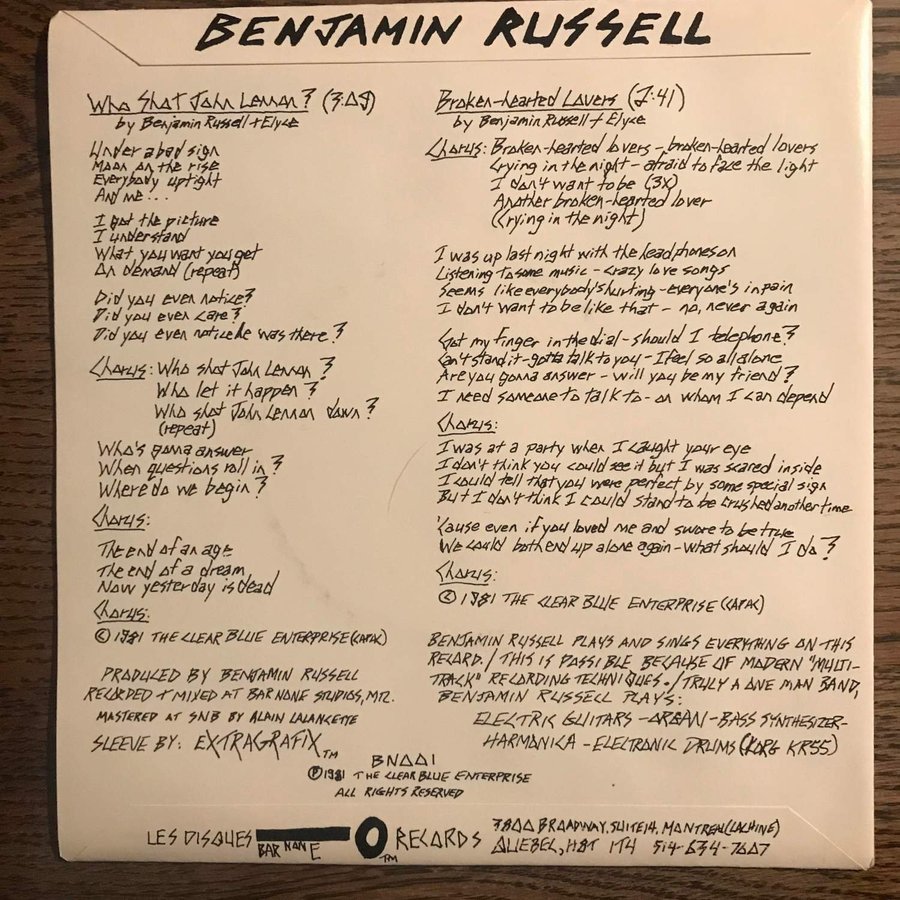 BENJAMIN RUSSELL
Who Shot John Lennon? (3:05)
by Benjamin Russell + Elyce
Under a bad sign
Moon on the rise
Everybody uptight
And me...
I got the picture
I understand
What you want you get
On demand (repeat)
Did you even notice?
Did you even care?
Did you even notice he was there?
Chorus: Who shot John Lennon?
Who let it happen?
Who shot John Lennon down?
(repeat)
Who's gonna answer
When questions roll in?
Where do we begin?
Chorus:
The end of an age
The end of a dream
Now yesterday is dead
Chorus:
© 1981 THE CLEAR BLUE ENTERPRISE (CAPAC)
PRODUCED BY BENJAMIN RUSSELL
RECORDED + MIXED AT BAR NONE STUDIOS, MTL.
MASTERED AT SNB BY ALAIN LALANCETTE
SLEEVE BY: EXTRAGRAFIX TM
Broken-hearted Lovers (2:41)
by Benjamin Russell + Elyce
Chorus: Broken-hearted lovers - broken-hearted lovers
Crying in the night - afraid to face the light
I don't want to be (3X)
Another broken-hearted lover
(Crying in the night)
I was up last night with the headphones on
Listening to some music - crazy love songs
Seems like everybody's hurting - everyone's in pain
I don't want to be like that - no, never again
Got my finger in the dial - should I telephone?
Can't stand it - gotta talk to you - I feel so all alone
Are you gonna answer - will you be my friend?
I need someone to talk to - on whom I can depend
Chorus:
I was at a party when I caught your eye
I don't think you could see it but I was scared inside
I could tell that you were perfect by some special sign
But I don't think I could stand to be crushed another time
'Cause even if you loved me and swore to be true
We could both end up alone again - what should I do?
Chorus:
© 1981 THE CLEAR BLUE ENTERPRISE (CAPAC)
BENJAMIN RUSSELL PLAYS AND SINGS EVERYTHING ON THIS
RECORD. / THIS IS POSSIBLE BECAUSE OF MODERN "MULTI-
TRACK" RECORDING TECHNIQUES. / TRULY A ONE MAN BAND,
BENJAMIN RUSSELL PLAYS:
ELECTRIC GUITARS - ORGAN - BASS SYNTHESIZER -
HARMONICA - ELECTRONIC DRUMS (KORG KR55)
BN001
℗ 1981 THE CLEAR BLUE ENTERPRISE
ALL RIGHTS RESERVED
LES DISQUES BAR NONE O TM RECORDS
3800 BROADWAY, SUITE 14, MONTREAL (LACHINE)
QUEBEC, H8T 1T4 514-634-7007